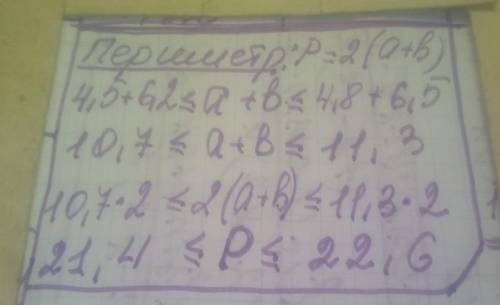 Периметр: P=2(a+b)
4,5+6,2≤a+b≤4,8+6,5
10,7≤a+b≤11,3
10,7·2≤2(a+b)≤11,3·2
21,4≤P≤22,6